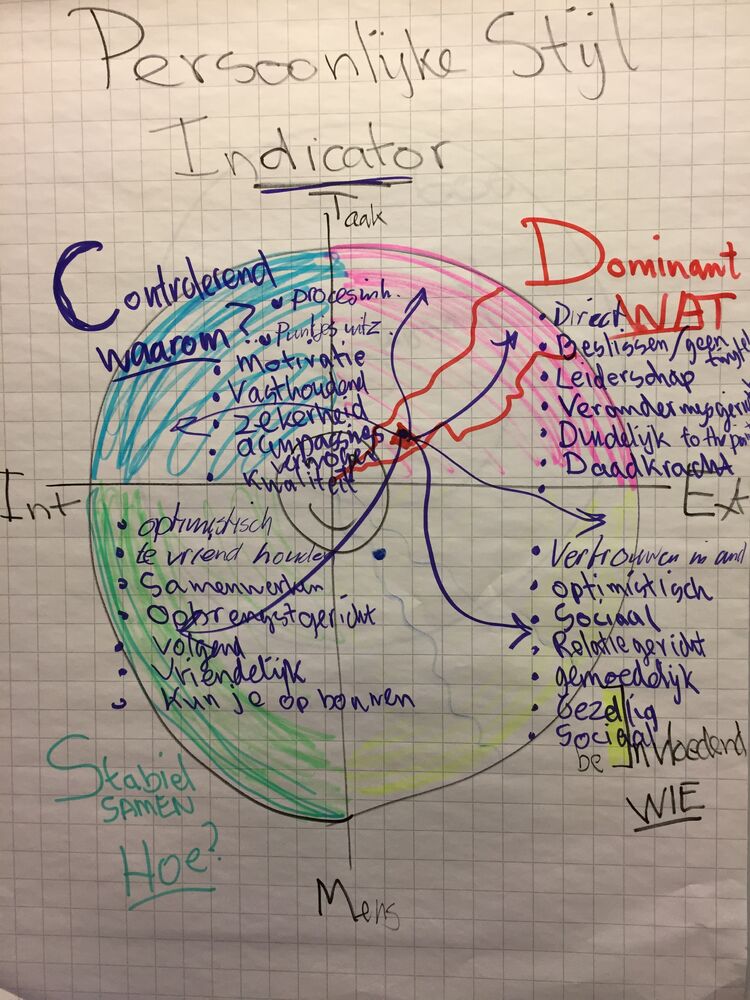 Persoonlijke Stijl
Indicator
Taak
Controlerend
waarom?
• procesinh.
• Puntjes
• motivatie
• Vasthoudend
• zekerheid
•
• Kwaliteit
Dominant
WAT
• Direct
• Beslissen/geen
• Leiderschap
•
• Duidelijk to the point
• Daadkracht
Int
Ext
• optimistisch
• te vriend houden
• Samenwerken
•
• volgend
• Vriendelijk
• Kun je op bouwen
Stabiel
SAMEN
Hoe?
• Vertrouwen in and
• optimistisch
• Sociaal
• Relatiegericht
• gemoedelijk
• Gezellig
• Sociaal
beInvloedend
WIE
Mens